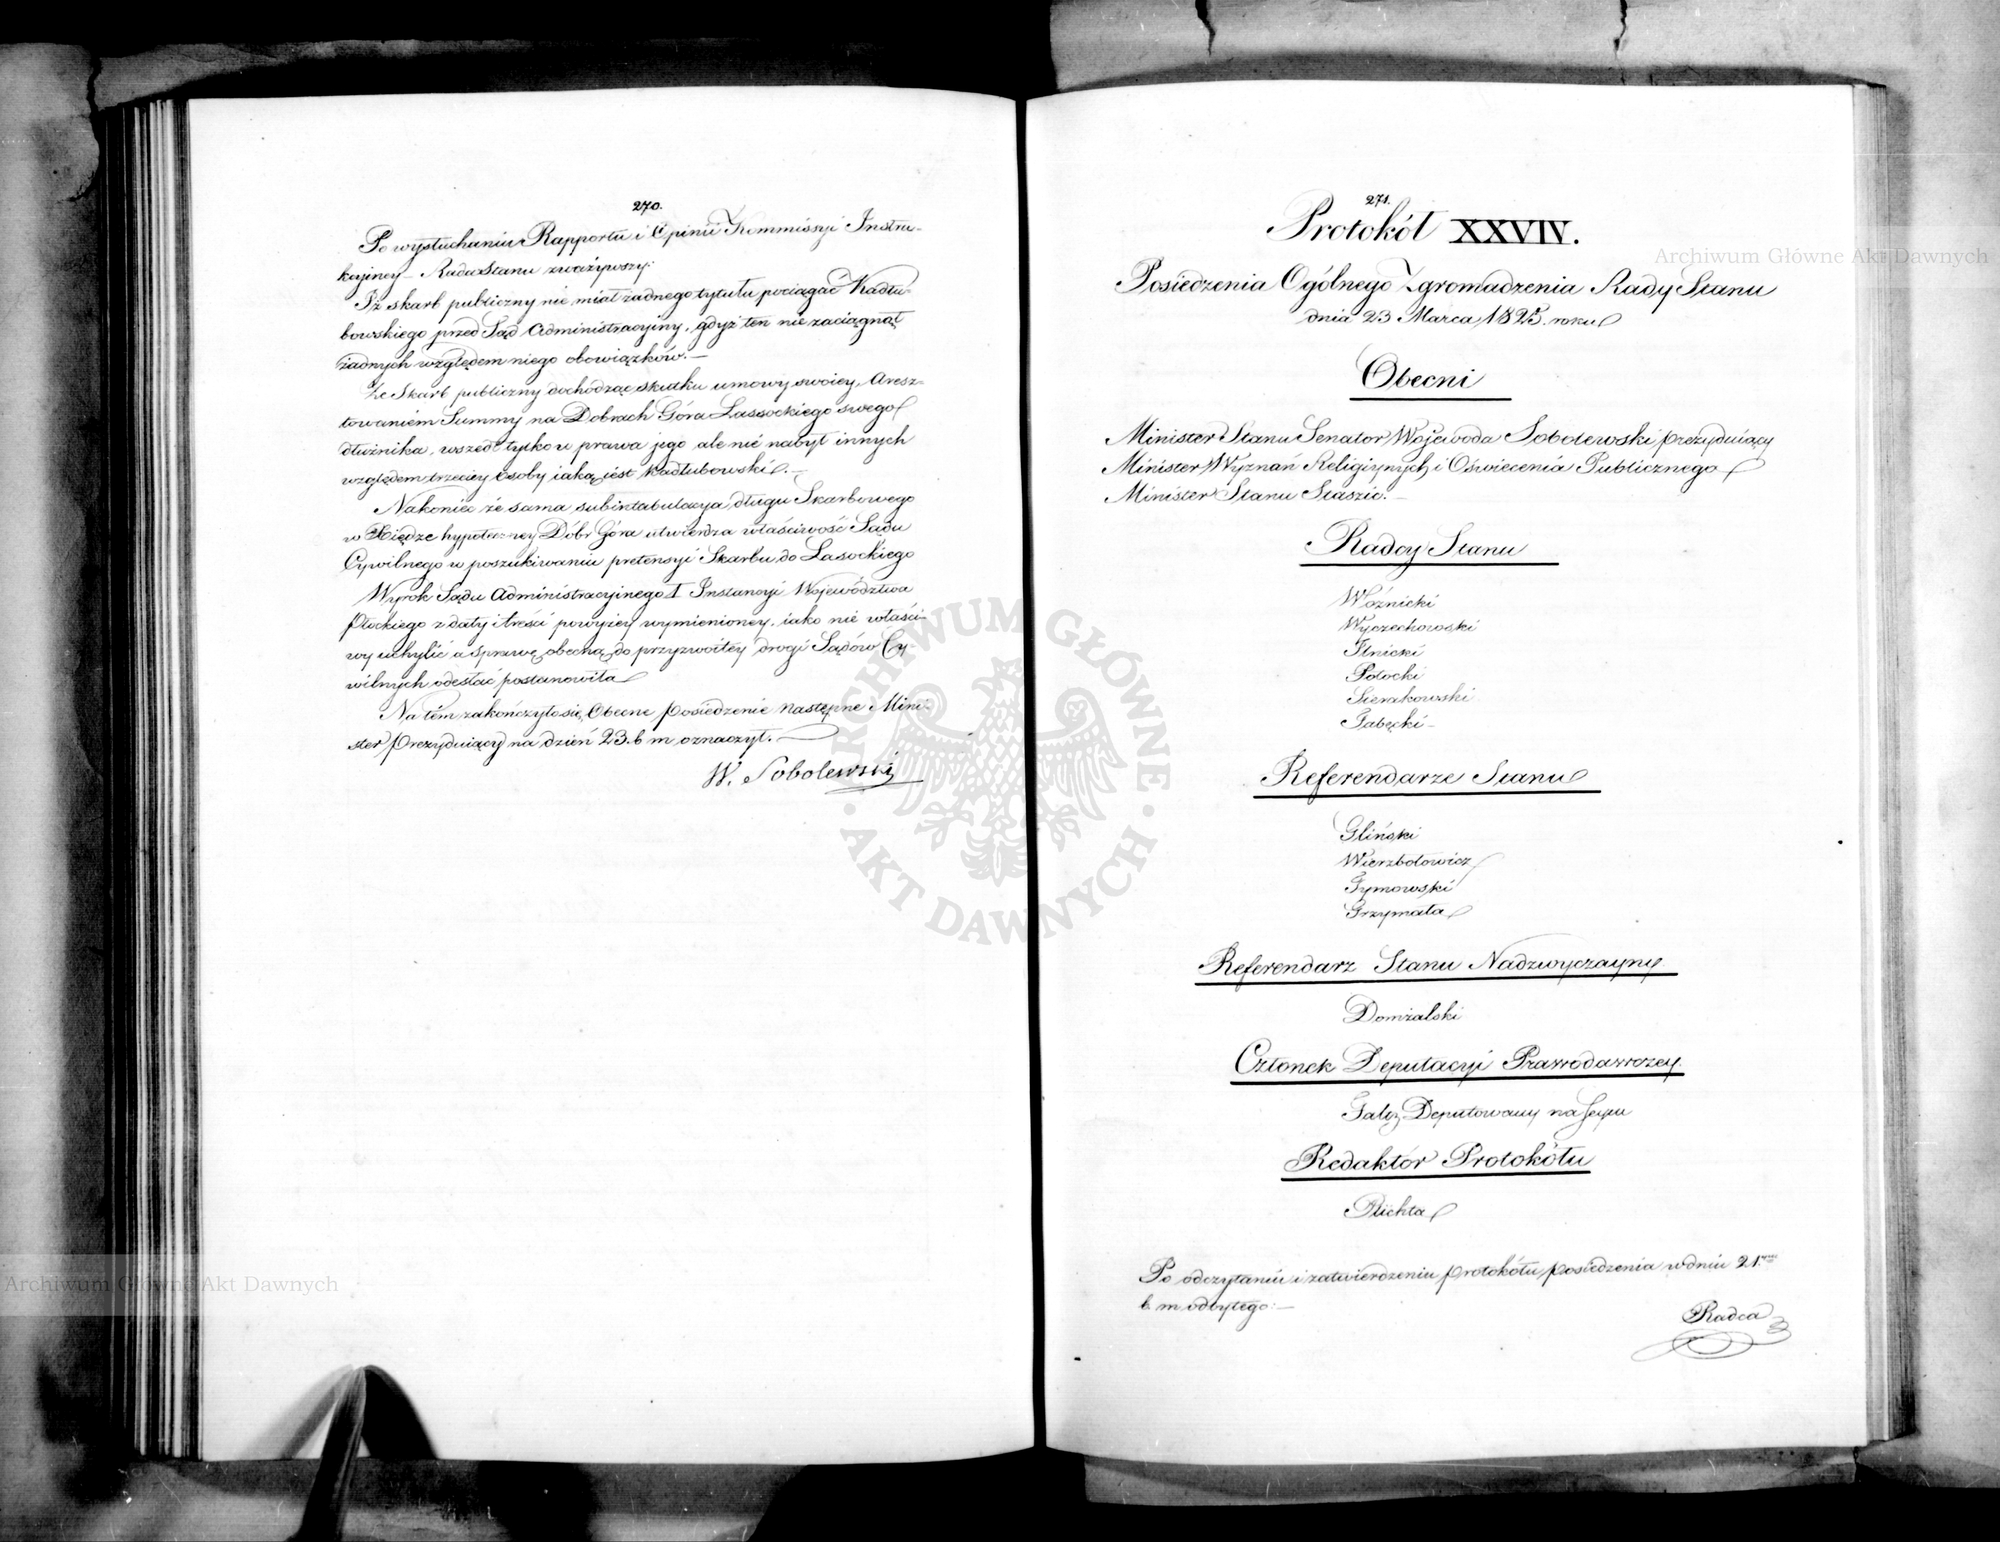 270.
Po wysłuchaniu Rapportu i Opinii Kommissyi Instru-
kcyiney Rada Stanu zważywszy:
Iż skarb publiczny nie miał żadnego tytułu pociągać Kadłu-
bowskiego przed Sąd Administracyiny, gdyż ten nie zaciągnął
żadnych względem niego obowiązków.—
Że Skarb publiczny dochodząc skutku umowy swoiey, Aresz-
towaniem Summy na Dobrach Góra Lassockiego swego
dłużnika, wszedł tylko w prawa jego ale nie nabył innych
względem trzeciey Osoby iaką iest Kadłubowski.—
Nakoniec że sama subintabulacya długu Skarbowego
w Xiędze hypoteczney Dóbr Góra utwierdza właściwość Sądu
Cywilnego w poszukiwaniu pretensyi Skarbu do Lasockiego
Wyrok Sądu Administracyjnego I Instancyi Województwa
Płockiego z daty i treści powyżey wymienioney, iako nie właści-
wy uchylić a sprawę obecną do przyzwoitey drogi Sądów Cy-
wilnych odesłać postanowiła
Na tém zakończyło się Obecne posiedzenie następne Mini-
ster Prezyduiący na dzień 23. b m oznaczył.—
W. Sobolewski
271.
Protokół XXVIV.
Posiedzenia Ogólnego Zgromadzenia Rady Stanu
dnia 23 Marca 1825. roku
Obecni
Minister Stanu Senator Wojewoda Sobolewski prezyduiący
Minister Wyznań Religiynych i Oświecenia Publicznego
Minister Stanu Staszic.—
Radcy Stanu
Woźnicki
Wyczechowski
Ilnicki
Potocki
Sierakowski
Tabęcki—
Referendarze Stanu
Gliński
Wierzbołowicz
Tymowski
Grzymała
Referendarz Stanu Nadzwyczayny
Domżalski
Członek Deputacyi Prawodawczey
Deputowany na Seym
Redaktór Protokółu
Plichta
Po odczytaniu i zatwierdzeniu protokółu posiedzenia w dniu 21.
b. m odbytego:—
Radca
ARCHIWUM GŁÓWNE
AKT DAWNYCH
Archiwum Główne Akt Dawnych
Archiwum Główne Akt Dawnych